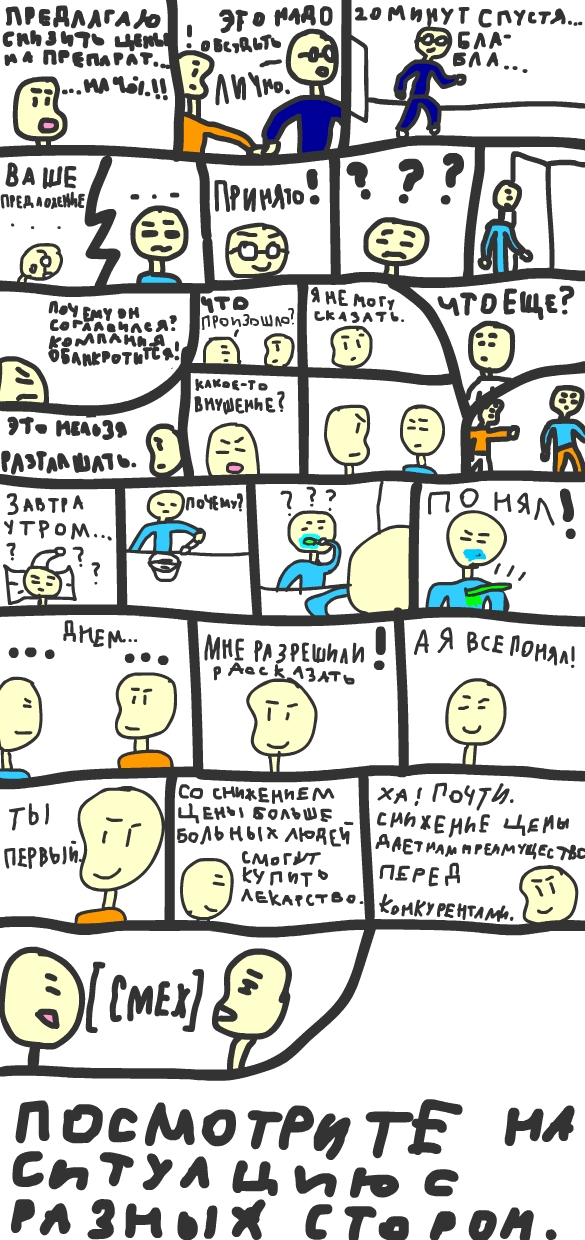 ПРЕДЛАГАЮ
СНИЗИТЬ ЦЕНЫ
НА ПРЕПАРАТ...
...НАЧОЛ.!!
!
ЭТО НАДО
ОБСУДИТЬ
ЛИЧНО.
20 МИНУТ СПУСТЯ...
БЛА-
БЛА...
ВАШЕ
ПРЕДЛОЖЕНИЕ
...
...
ПРИНЯТО!
? ? ?
ПОЧЕМУ ОН
СОГЛАСИЛСЯ?
КОМПАНИЯ
ОБАНКРОТИТСЯ!
ЧТО
ПРОИЗОШЛО?
Я НЕ МОГУ
СКАЗАТЬ.
ЧТО ЕЩЕ?
ЭТО НЕЛЬЗЯ
РАЗГЛАШАТЬ.
КАКОЕ-ТО
ВНУШЕНИЕ?
ЗАВТРА
УТРОМ...
? ? ?
ПОЧЕМУ?
? ? ?
ПОНЯЛ!
ДНЕМ...
... ...
МНЕ РАЗРЕШИЛИ!
РАССКАЗАТЬ
А Я ВСЕ ПОНЯЛ!
ТЫ
ПЕРВЫЙ.
СО СНИЖЕНИЕМ
ЦЕНЫ БОЛЬШЕ
БОЛЬНЫХ ЛЮДЕЙ
СМОГУТ
КУПИТЬ
ЛЕКАРСТВО.
ХА! ПОЧТИ.
СНИЖЕНИЕ ЦЕНЫ
ДАЕТ НАМ ПРЕИМУЩЕСТВО
ПЕРЕД
КОНКУРЕНТАМИ.
[СМЕХ]
ПОСМОТРИТЕ НА
СИТУАЦИЮ С
РАЗНЫХ СТОРОН.